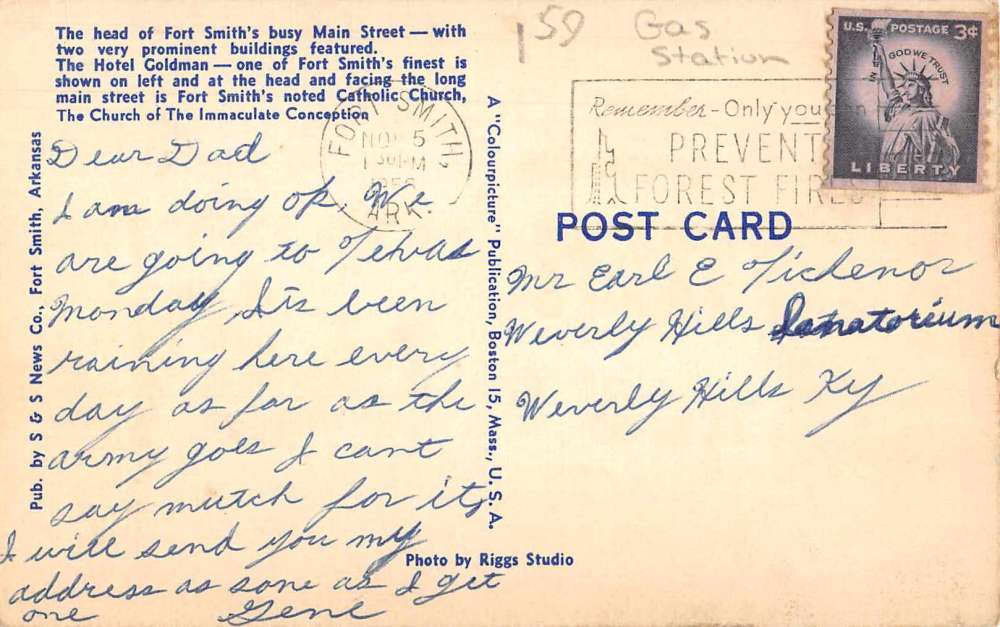 The head of Fort Smith's busy Main Street — with
two very prominent buildings featured.
The Hotel Goldman — one of Fort Smith's finest is
shown on left and at the head and facing the long
main street is Fort Smith's noted Catholic Church,
The Church of The Immaculate Conception
Pub. by S & S News Co., Fort Smith, Arkansas
Dear Dad
I am doing ok, We
are going to Texas
Monday, Its been
raining here every
day as far as the
army goes I cant
say mutch for it,
I will send you my
address as sone as I get
one Gene
A "Colourpicture" Publication, Boston 15, Mass., U. S. A.
Photo by Riggs Studio
FORT SMITH,
ARK.
59
Gas
Station
Remember - Only you
PREVENT
FOREST FIRES
U.S. POSTAGE 3¢
IN GOD WE TRUST
LIBERTY
POST CARD
Mr Earl E Tichenor
Weverly Hills Sanatorium
Weverly Hills Ky